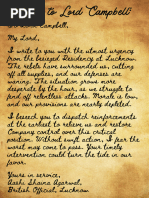 to Lord Campbell:
Campbell,
My Lord,
I write to you with the utmost urgency
from the besieged Residency at Lucknow.
The rebels have surrounded us, cutting
off all supplies, and our defenses are
The situation grows more
desperate by the hour, as we struggle to
fend off relentless attacks. Morale is low,
and our provisions are nearly depleted.
I beseech you to dispatch reinforcements
at the earliest convenience and restore
Company control over this critical
position. Without swift action, I fear the
worst may come to pass. Your timely
intervention could turn the tide in our
favor.
Yours in service,
Aashi Shaina Agarwal,
British Official, Lucknow